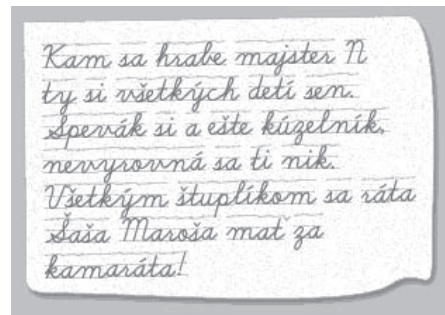 Kam sa hrabe majster N
ty si všetkých detí sen.
Spevák si a ešte kúzelník,
nevyrovná sa ti nik.
Všetkým štuplíkom sa ráta
Šaša Maroša mať za
kamaráta!